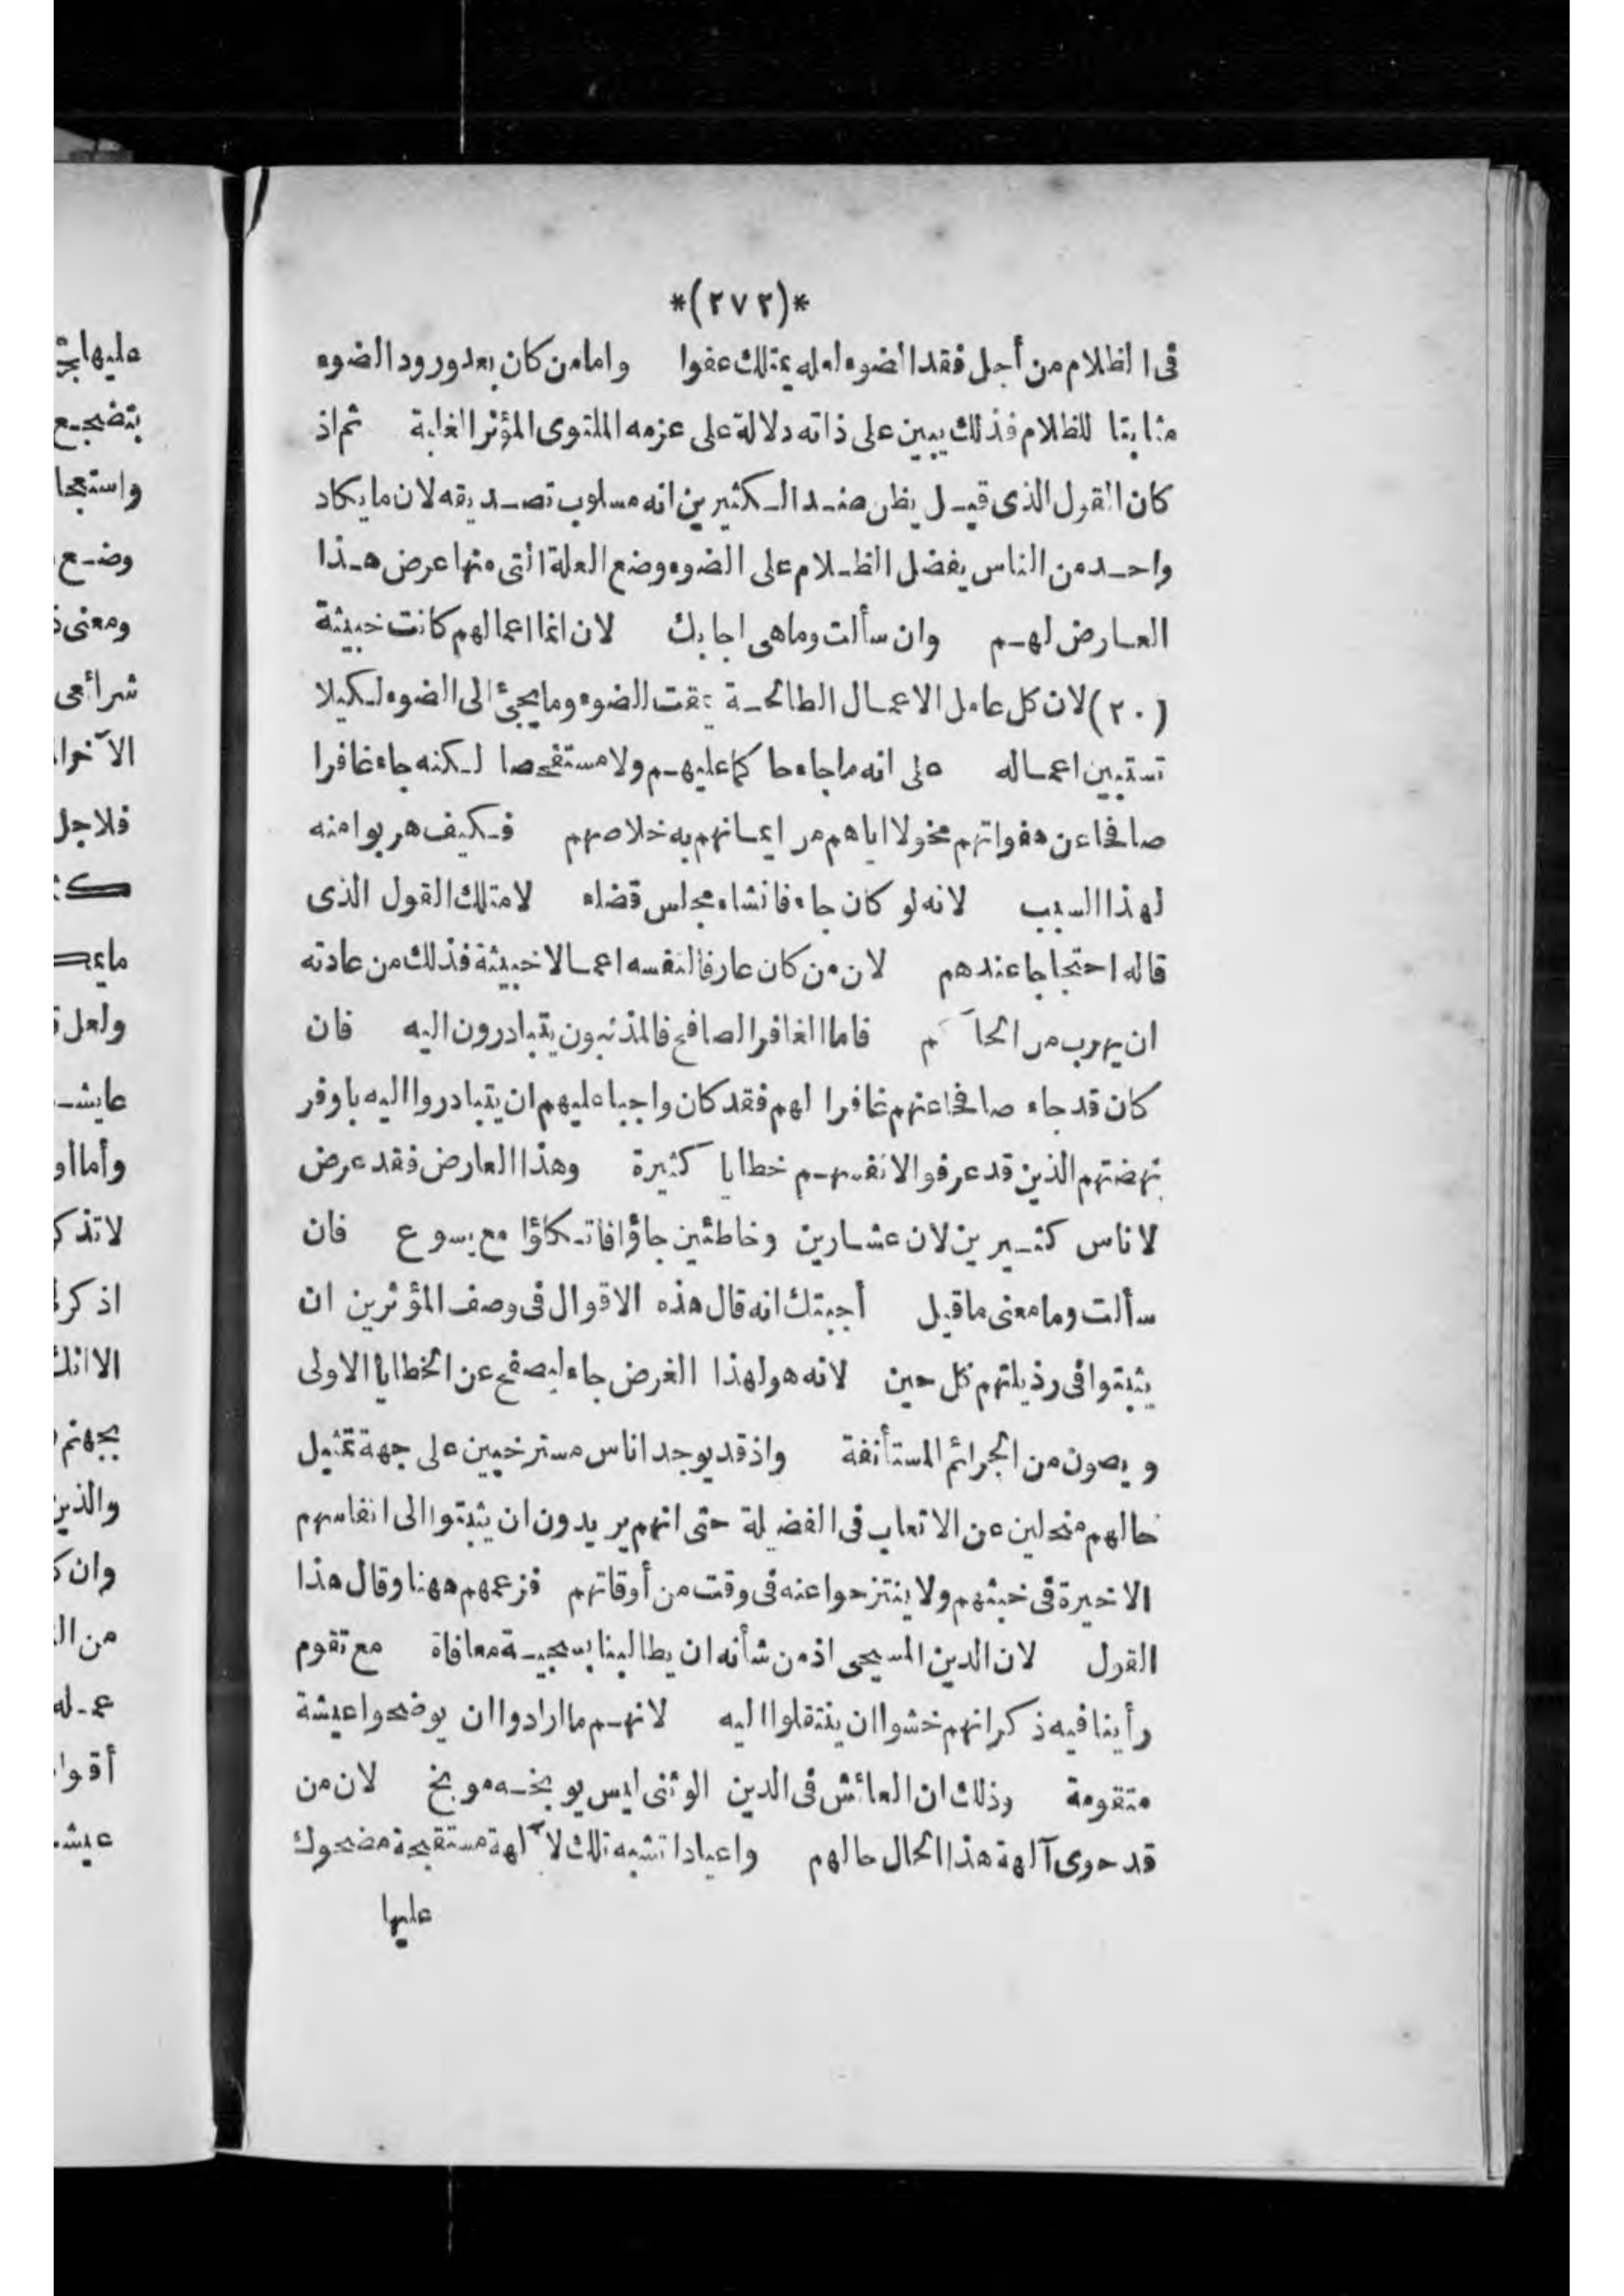 *(٢٧٢)*
فى الظلام من أجل فقد الضوء لعله يمتلك عفوا واما من كان بعد ورود الضوء
مثابتا للظلام فذلك يبين على ذاته دلالة على عزمه الملتوى المؤثر الغابة ثم اذ
كان القول الذى قيل يظن عند الكثيرين انه مسلوب تصديقه لان ما يكاد
واحد من الناس يفضل الظلام على الضوء وضع العلة التى منها عرض هذا
العارض لهم وان سألت وما هى اجابك لان انما اعمالهم كانت خبيثة
(٢٠) لان كل عامل الاعمال الطالحة يمقت الضوء وما يجئ الى الضوء لكيلا
تستبين اعماله على انه ما جاء حاكما عليهم ولا مستفحصا لكنه جاء غافرا
صافحا عن هفواتهم مخولا اياهم من ايمانهم به خلاصهم فكيف هربوا منه
لهذا السبب لانه لو كان جاء فانشاء مجلس قضاء لامتلك القول الذى
قاله احتجاجا عندهم لان من كان عارفا لنفسه اعمالا خبيثة فذلك من عادته
ان يهرب من الحاكم فاما الغافر الصافح فالمذنبون يتبادرون اليه فان
كان قد جاء صافحا عنهم غافرا لهم فقد كان واجبا عليهم ان يتبادروا اليه باوفر
نهضتهم الذين قد عرفوا لانفسهم خطايا كثيرة وهذا العارض فقد عرض
لاناس كثيرين لان عشارين وخاطئين جاؤا فاتكاؤا مع يسوع فان
سألت وما معنى ما قيل أجبتك انه قال هذه الاقوال فى وصف المؤثرين ان
يثبتوا فى رذيلتهم كل حين لانه هو لهذا الغرض جاء ليصفح عن الخطايا الاولى
ويصون من الجرائم المستأنفة واذ قد يوجد اناس مسترخيين على جهة تمثيل
حالهم منحلين عن الاتعاب فى الفضيلة حتى انهم يريدون ان يثبتوا الى انفاسهم
الاخيرة فى خبثهم ولا ينتزحوا عنه فى وقت من أوقاتهم فزعمهم ههنا وقال هذا
القول لان الدين المسيحى اذ من شأنه ان يطالبنا بسجية معافاة مع تقوم
رأينا فيه ذكر انهم خشوا ان ينتقلوا اليه لانهم ما ارادوا ان يوضحوا عيشة
متقومة وذلك ان العائش فى الدين الوثنى ليس يوبخه موبخ لان من
قد حوى آلهة هذا الحال حالهم واعيادا تشبه تلك لآلهة مستقبحة مضحوك
عليها